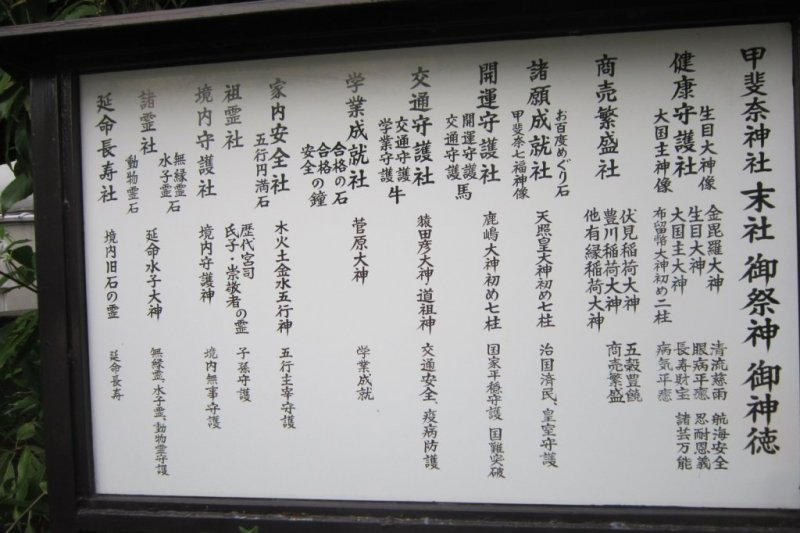 甲斐奈神社 末社 御祭神 御神徳
健康守護社
生目大神像
大国主神像
金毘羅大神
生目大神
大国主大神
布留幣大神初め二柱
清流慈雨 航海安全
眼病平癒 忍耐恩義
長寿財宝 諸芸万能
病気平癒
商売繁盛社
伏見稲荷大神
豊川稲荷大神
他有縁稲荷大神
五穀豊饒
商売繁盛
諸願成就社
お百度めぐり石
甲斐奈七福神像
天照皇大神初め七柱
治国済民、皇室守護
開運守護社
開運守護 馬
交通守護
鹿嶋大神初め七柱
国家平穏守護 国難突破
交通守護社
交通守護 牛
学業守護
猿田彦大神 道祖神
交通安全、疫病防護
学業成就社
合格の石
合格の鐘
安全
菅原大神
学業成就
家内安全社
五行円満石
木火土金水五行神
五行主宰守護
祖霊社
歴代宮司
氏子・崇敬者の霊
子孫守護
境内守護社
境内守護神
境内無事守護
諸霊社
無縁霊石
水子霊石
動物霊石
延命水子大神
無縁霊、水子霊、動物霊守護
延命長寿社
境内旧石の霊
延命長寿